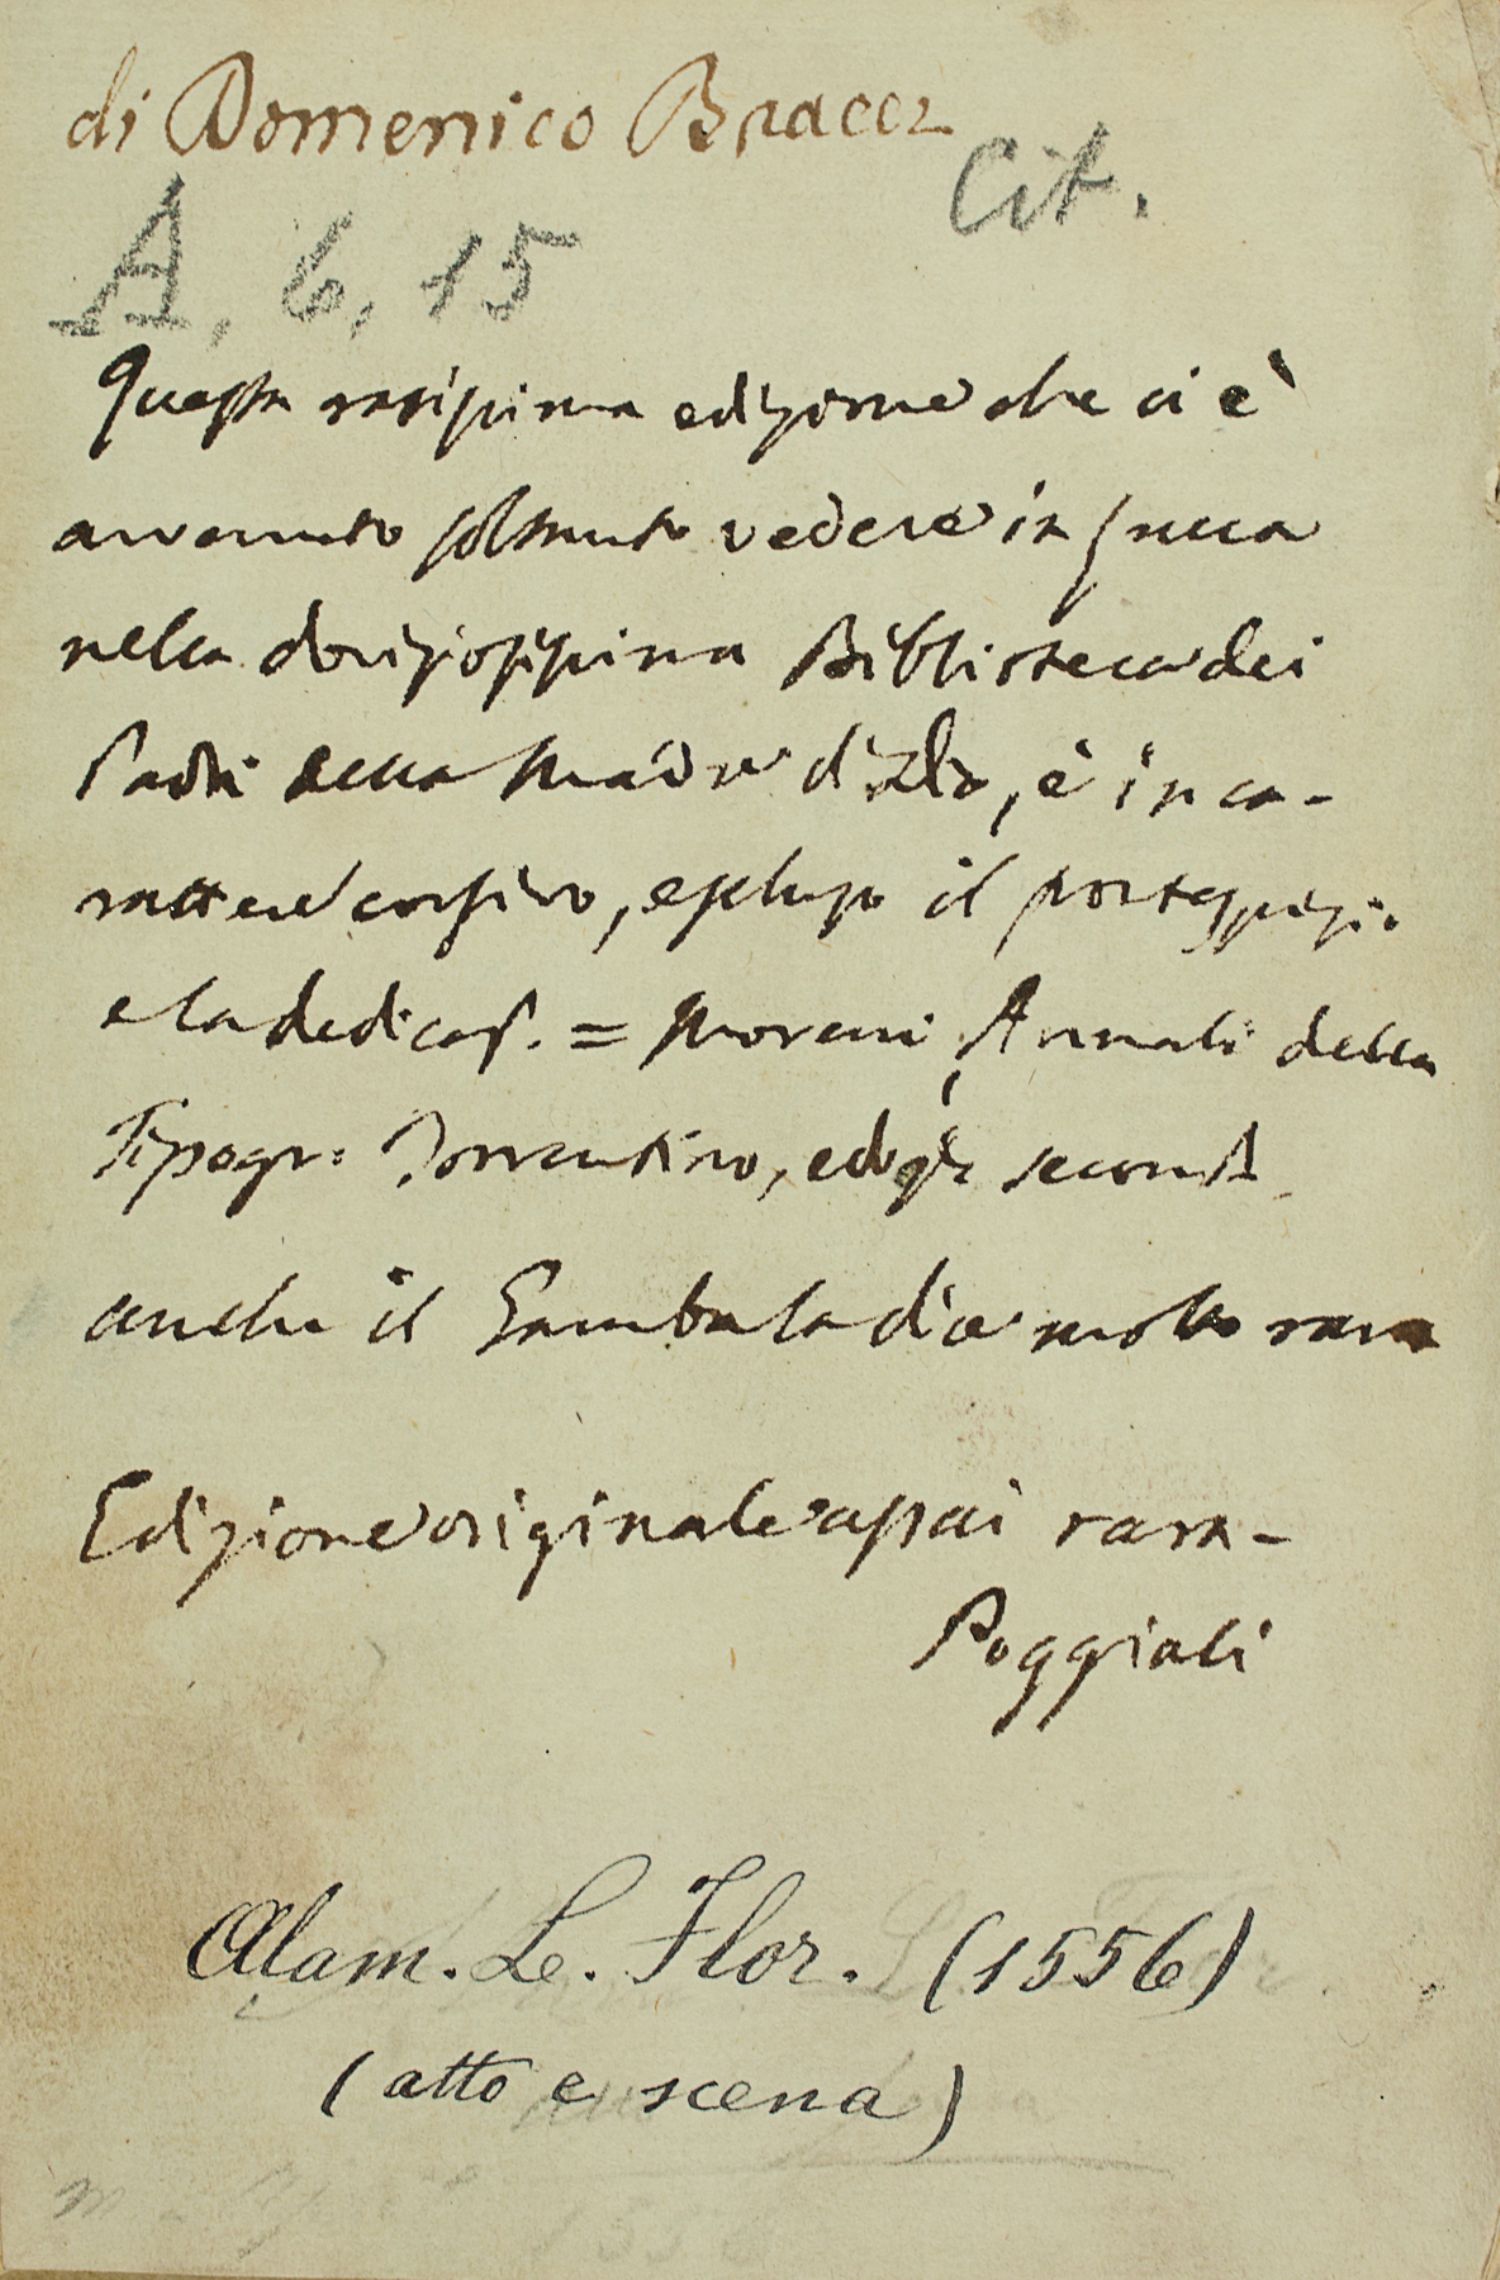 di Domenico Bracci
Cit.
A, 6, 15
Questa rarissima edizione che ci è
avvenuto soltanto vedere in Lucca
nella doviziosissima Biblioteca dei
Padri della Madre di Dio, è in ca-
rattere corsivo, escluso il frontespizio
e la dedicaz. = Moreni, Annali della
Tipogr: Torrentino, ediz: second.
anche il Gamba la dice molto rara
Edizione originale assai rara -
Poggiali
Alam. L. Flor. (1556)
(atto e scena)